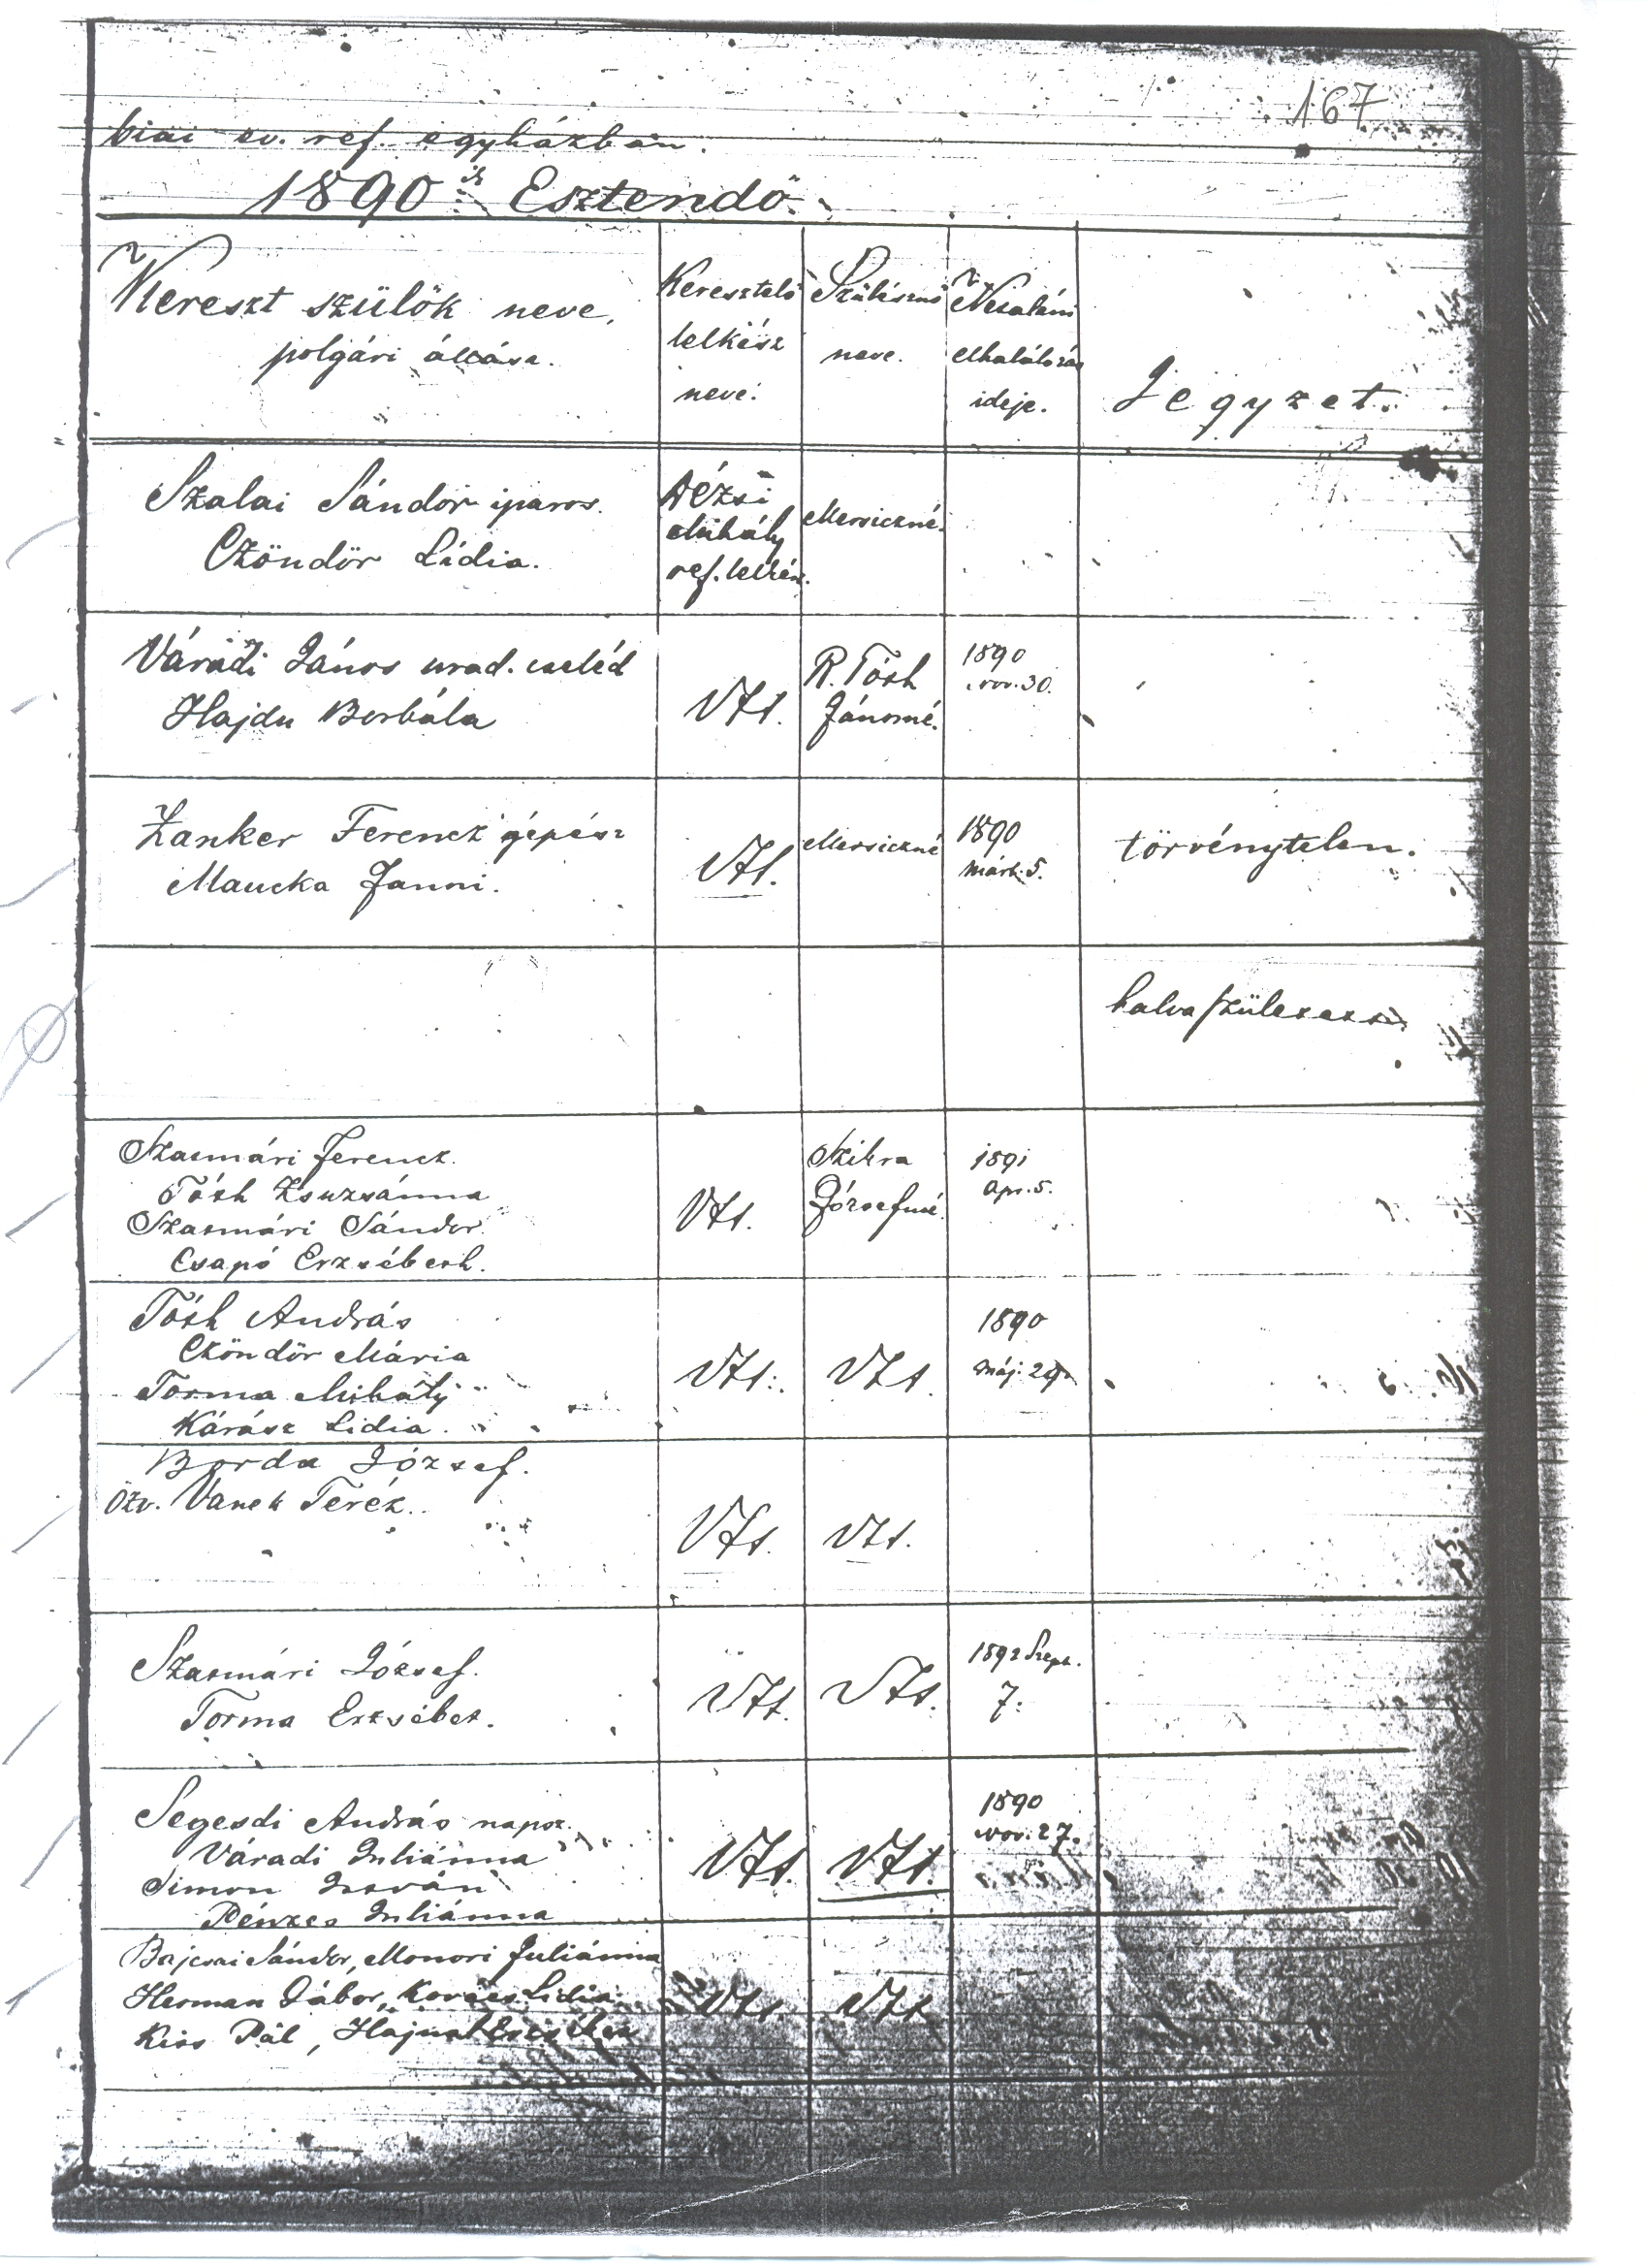 167
biai ev. ref. egyházban.
1890ik Esztendő.
Kereszt szülők neve,
polgári állása.
Keresztelő
lelkész
neve.
Szülésznő
neve.
Netaláni
elhalálozás
ideje.
Jegyzet.
Szalai Sándor iparos.
Czöndör Lídia.
Nézsi
Mihály
ref. lelkész.
Mersiczné.
Váradi János urad. cseléd
Hajdu Borbála
Vtt.
R. Tóth
Jánosné.
1890
nov. 30.
Zanker Ferencz gépész
Maucka Fanni.
Vtt.
Mersiczné
1890
márt. 5.
törvénytelen.
halva született.
Szatmári Ferencz.
Tóth Zsuzsánna
Szatmári Sándor.
Csapó Erzsébeth.
Vtt.
Szikra
Józsefné.
1891
Apr. 5.
Tóth András
Czöndör Mária
Torma Mihály
Kárász Lidia.
Vtt.
Vtt.
1890
Máj. 29
Borda József.
özv. Vanek Teréz.
Vtt.
Vtt.
Szatmári József.
Torma Erzsébet.
Vtt.
Vtt.
1892 Szept.
7.
Segesdi András napsz.
Váradi Juliánna
Simon István
Pénzes Juliánna
Vtt.
Vtt.
1890
Nov. 27.
Bajcsai Sándor, Monori Juliánna
Herman Gábor, Kovács Lidia
Kiss Pál, Hajnal Erzsébet
Vtt.
Vtt.